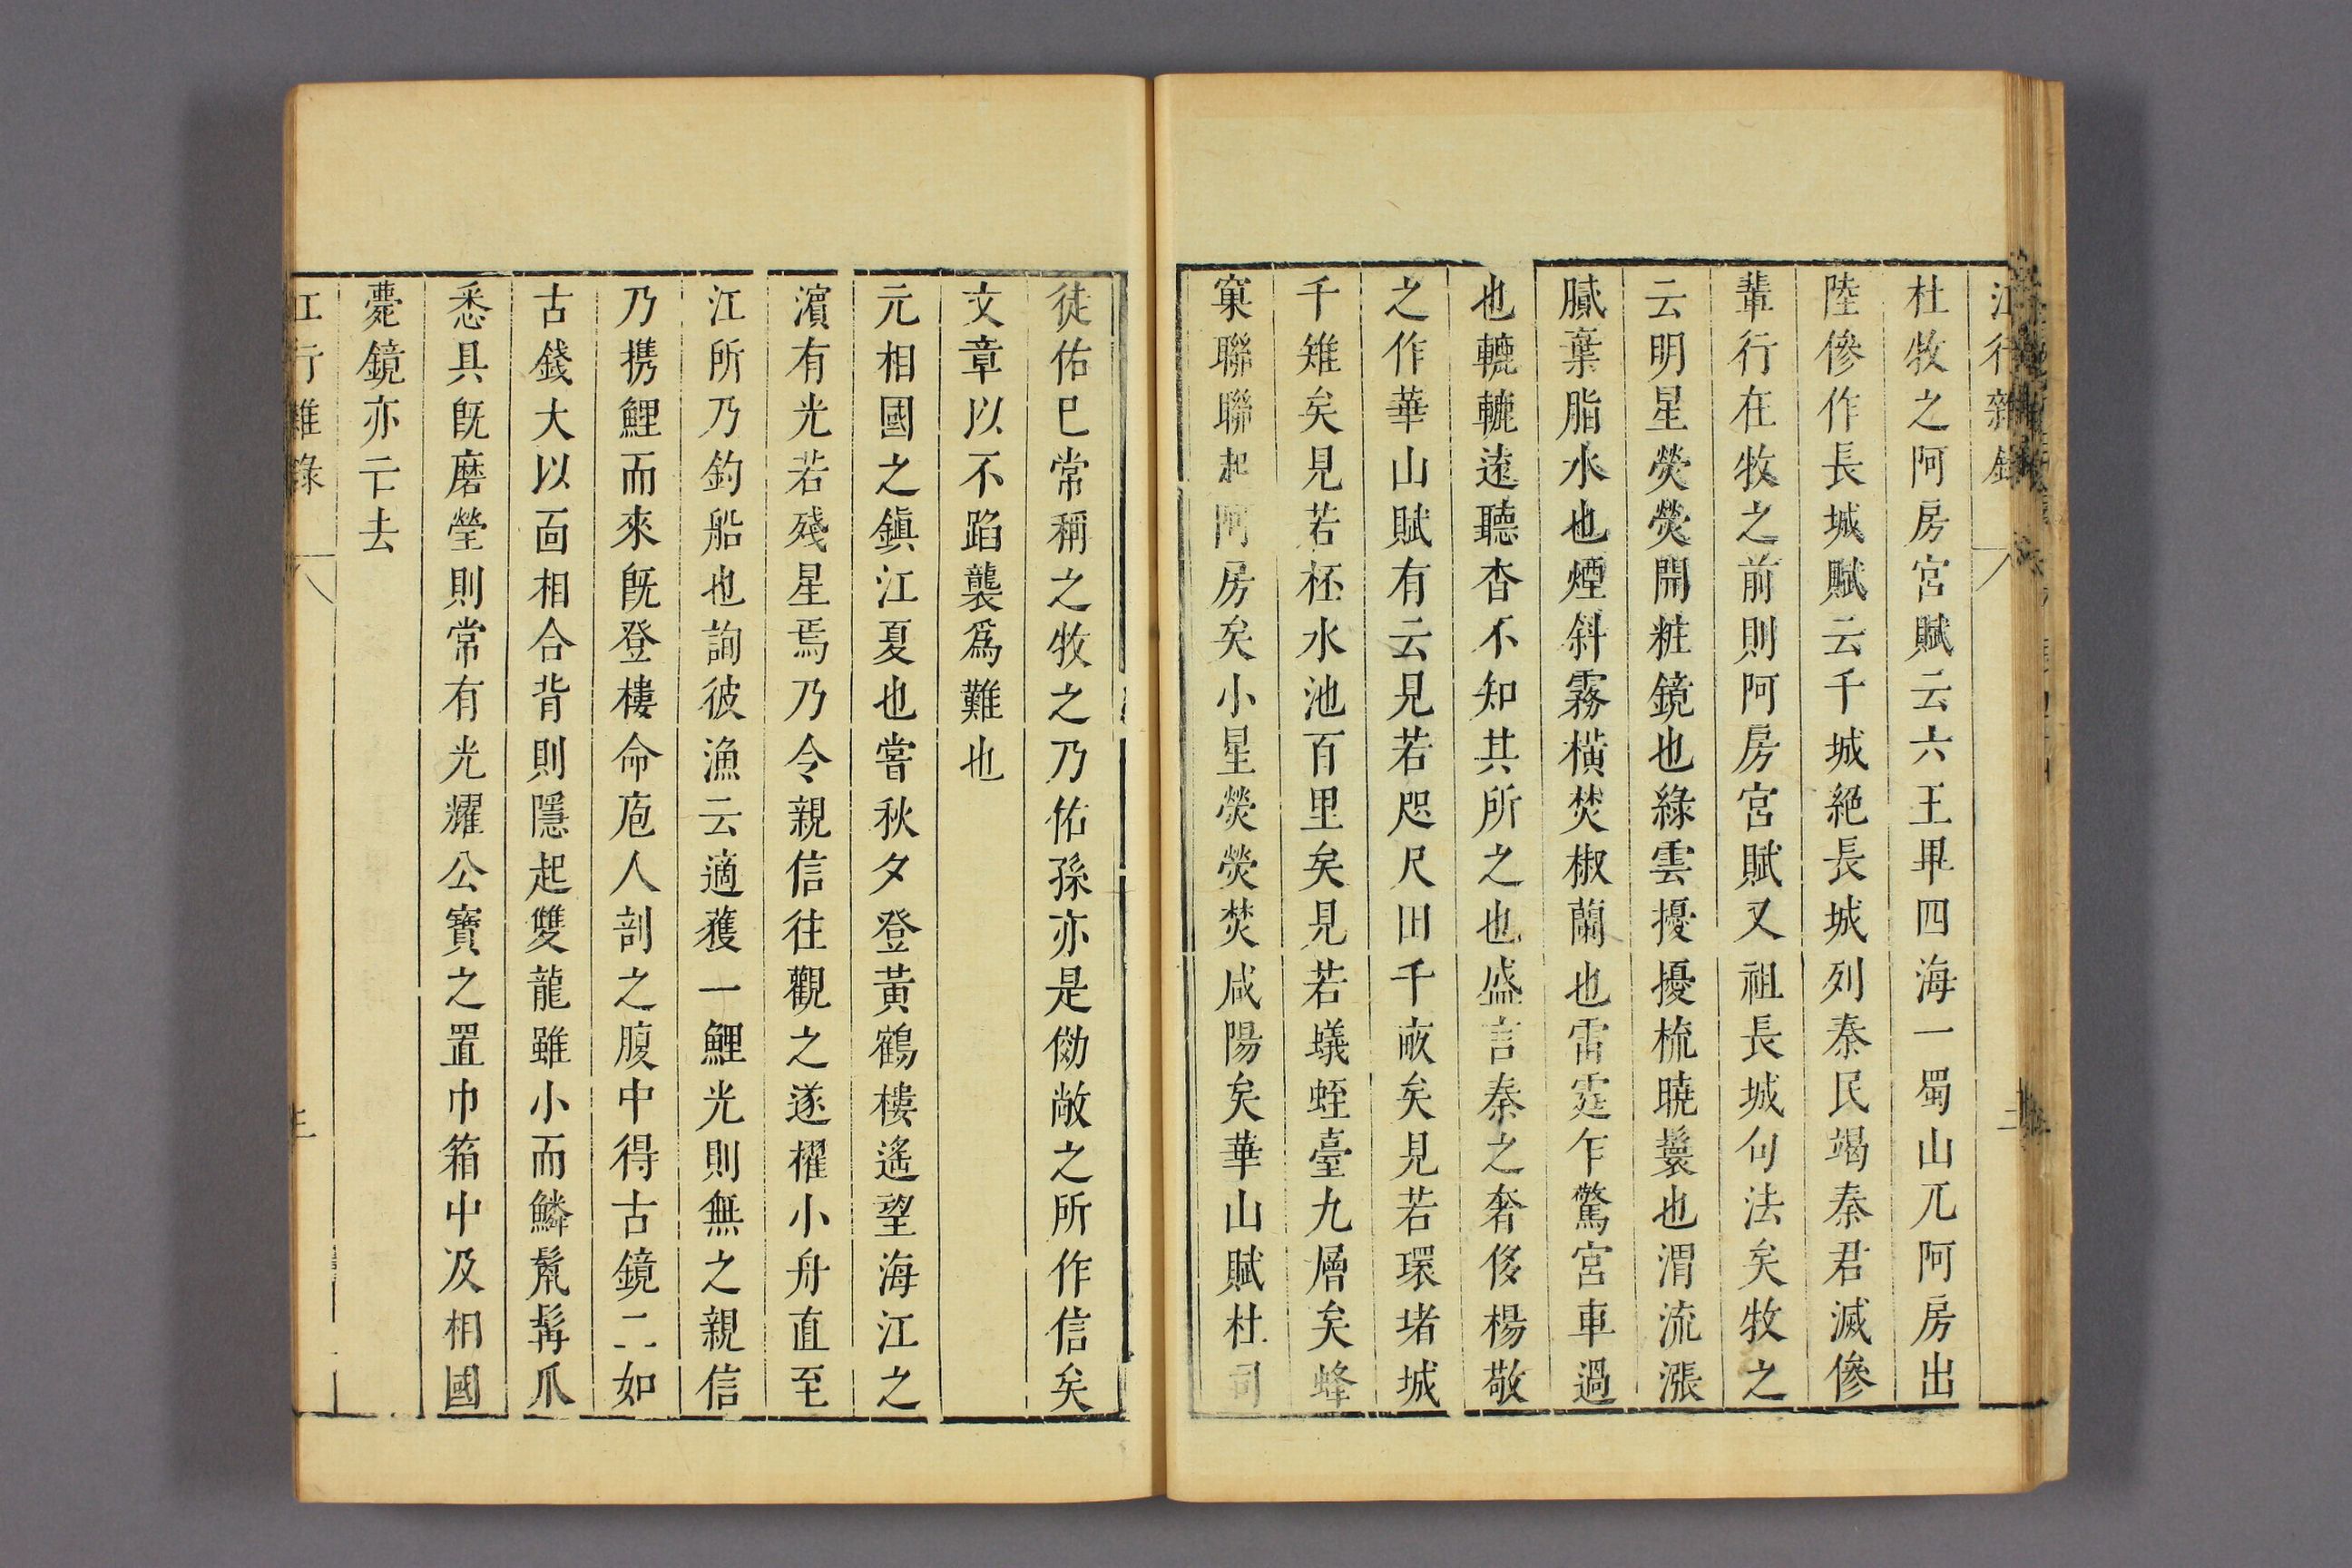 江行雜錄
二
杜牧之阿房宮賦云六王畢四海一蜀山兀阿房出
陸傪作長城賦云千城絕長城列秦民竭秦君滅傪
輩行在牧之前則阿房宮賦又祖長城句法矣牧之
云明星熒熒開粧鏡也綠雲擾擾梳曉鬟也渭流漲
膩棄脂水也煙斜霧橫焚椒蘭也雷霆乍驚宮車過
也轆轆遠聽杳不知其所之也盛言秦之奢侈楊敬
之作華山賦有云見若咫尺田千畝矣見若環堵城
千雉矣見若杯水池百里矣見若蟻蛭臺九層矣蜂
窠聯聯起阿房矣小星熒熒焚咸陽矣華山賦杜司
徒佑巳常稱之牧之乃佑孫亦是傚敞之所作信矣
文章以不蹈襲爲難也
元相國之鎭江夏也嘗秋夕登黃鶴樓遙望海江之
濵有光若殘星焉乃令親信往觀之遂櫂小舟直至
江所乃釣船也詢彼漁云適獲一鯉光則無之親信
乃携鯉而來旣登樓命庖人剖之腹中得古鏡二如
古錢大以面相合背則隱起雙龍雖小而鱗鬛髯爪
悉具旣磨瑩則常有光耀公寶之置巾箱中及相國
薨鏡亦亡去
江行雜錄